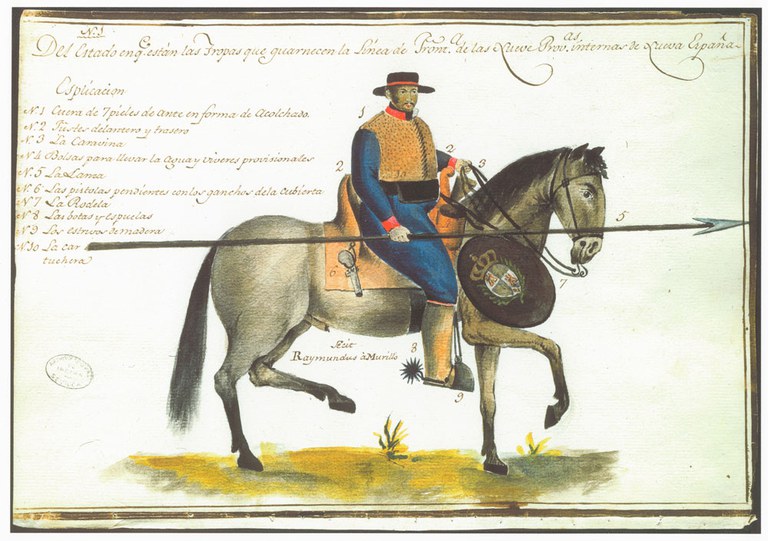 N.1
Del Estado en q.e están las Tropas que guarnecen la Linea de Front.a de las Nueve Prov.as internas de Nueva España
Esplicacion
N.1 Cuera de 7 pieles de ante en forma de Acolchado.
N.2 Fustes delantero y trasero
N.3 La Caravina
N.4 Bolsas para llevar la Agua y viveres provisionales
N.5 La Lanza
N.6 Las pistolas pendientes con los ganchos de la Cubierta
N.7 La Rodela
N.8 Las botas y espuelas
N.9 Los estrivos de madera
N.10 La car
tuchera
1
2
2
3
5
6
7
Fecit
Raymundus à Murillo
8
9